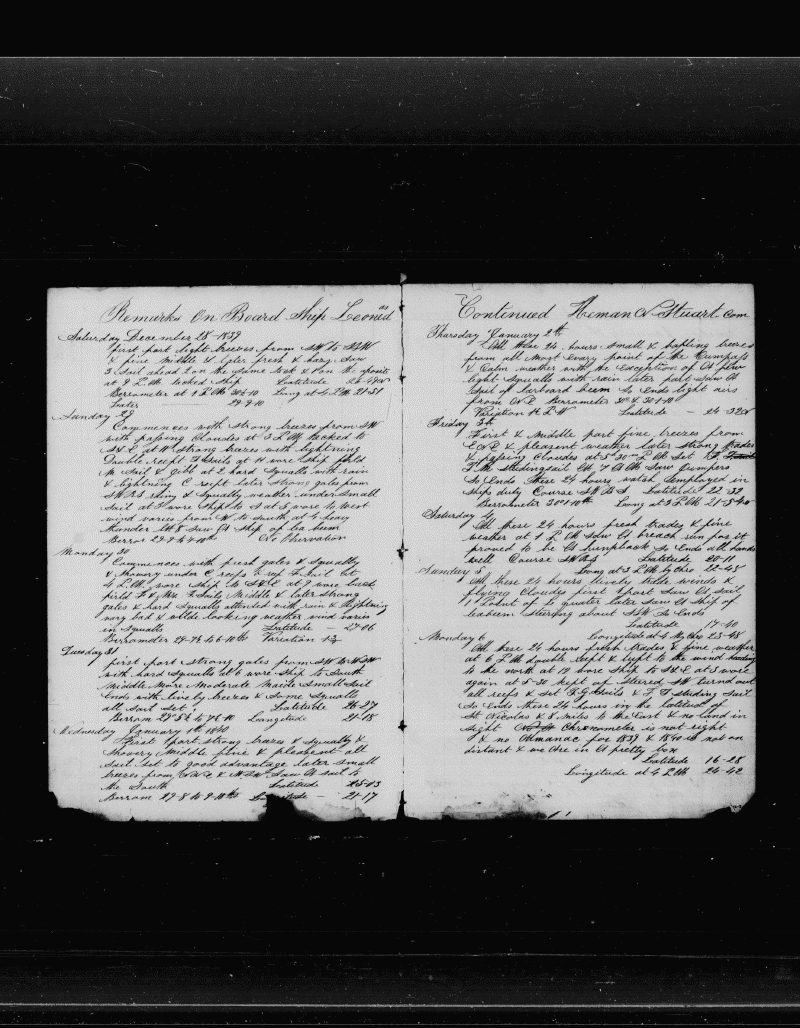 Remarks On Board Ship Leonidas
Saturday December 28 1839
first part light breezes from SW to SSW
& fine middle & later fresh & hazy Saw
3 Sail ahead 2 on the same tack & 1 on the aposite
at 9 P.M tacked Ship Latitude
Berrometer at 1 P.M 30 Long at 4 P.M 21-51
Later 29-9-10
Sunday 29
Commences with strong breezes from SW
with passing Cloudes at 3 P.M tacked to
S&E at strong breezes with lightning
Double reept T Sails at wore Ship furld
M Sail & Gibb at 2 hard Squalls with rain
& lightning C reept later Strong gales from
SW & Squally weather under small
Sail at wore Ship to S at 5 wore to West
wind varies from W to South at 4 heavy
thunder at 8 Saw A Ship of lea beam
Berrom 29 No Observation
Monday 30
Commences with fresh gales & Squally
& Showery under C reefs F Sail at
4 P.M wore Ship to S&E at wore back
furld F & Mz T Sails Middle & later strong
gales & hard Squalls attended with rain & lightning
very bad & wilde looking weather wind varies
in Squalls Latitude - 27-06
Berrometer 29 to 6-10th Variation
Tuesday 31
first part Strong gales from SW to WSW
with hard Squalls at 6 wore Ship to South
middle More Moderate Maide Small Sail
Ends with lively breezes & Some Squalls
all Sail Set Latitude 26-27
Berrom 29 to 7-10 Longitude 21-18
Wednesday January 1st 1840
First part strong breezes & Squally &
Showery Middle fine & pleasent all
Sail Set to good advantage later small
breezes from & Saw A Sail to
the South Latitude 25-13
Berrom 29-8 to 9-10ths - 21-17
Continued Heman N Stuart Com
Thursday January 2th
All these 24 hours Small & bafling breezes
from all Most Evary point of the Cumpass
& Calm weather with the Exception of A few
light Squalls with rain later part Saw A
Sail of larboard beem So Ends light airs
from Berrometer 30 & 30 1-10
Variation Pt W Latitude - 24-32
Friday 3th
First & Middle part fine breezes from
& pleasent weather later strong trades
& passing Cloudes at 5-30 P.M Set
T.M Studingsail at 7 A.M Saw Jumpers
So Ends these 24 hours watch Employed in
Ships duty Course Latitude 22-32
Berrometer 30 1-10th Long at 3 P.M 21-5
Saturday
All these 24 hours fresh trades & fine
weather at 1 P.M Saw A breach run for it
proved to be A humpback So Ends all hands
well Course Latitude 20-11
Sunday 5 Long at 3 P.M by Chro 22-48
All these 24 hours lively trade winds &
flying Cloudes first part Saw A Sail
1 Point of to quater later Saw A Ship of
labeem Steering about SW So Ends
Latitude 17-40
Monday 6 Longitude at 4 by Chro 23-48
All these 24 hours fresh trades & fine weather
at 6 P.M double reept & lupt to the wind heading
to the north at 12 wore Ship to S&E at 5 wore
again at 5-30 kept of Steered SW turnd out
all reefs & Set T.G Sails & F.T Studing Sail
So Ends these 24 hours in the latitud of
St Nicolas & 8 miles to the East & no land in
Sight Chronometer is not right
I & no Almanac for 1839 & 1840 is not on
distant & we Are in A pretty box
Latitude 16-28
Longitude at 4 P.M 24-42